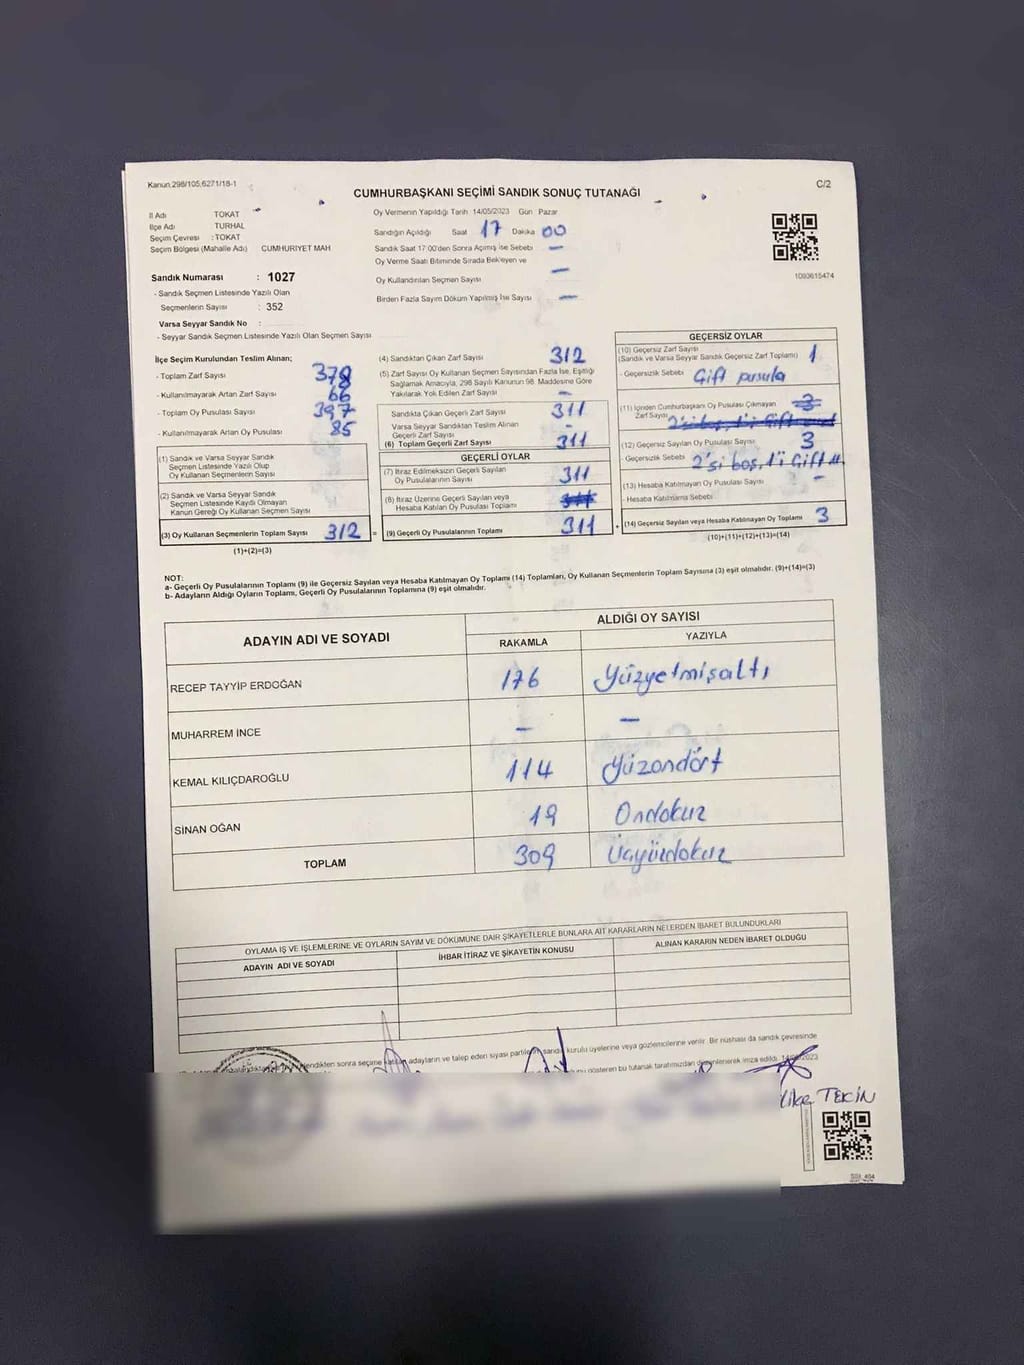 Kanun.298/105,6271/18-1
C/2
CUMHURBAŞKANI SEÇİMİ SANDIK SONUÇ TUTANAĞI
İl Adı TOKAT
İlçe Adı TURHAL
Seçim Çevresi : TOKAT
Seçim Bölgesi (Mahalle Adı) CUMHURİYET MAH.
Sandık Numarası : 1027
- Sandık Seçmen Listesinde Yazılı Olan
Seçmenlerin Sayısı : 352
Varsa Seyyar Sandık No :
- Seyyar Sandık Seçmen Listesinde Yazılı Olan Seçmen Sayısı
Oy Vermenin Yapıldığı Tarih 14/05/2023 Gün Pazar
Sandığın Açıldığı Saat 17 Dakika 00
Sandık Saat 17:00'den Sonra Açılmış İse Sebebi —
Oy Verme Saati Bitiminde Sırada Bekleyen ve
Oy Kullandırılan Seçmen Sayısı —
Birden Fazla Sayım Döküm Yapılmış İse Sayısı —
1093615474
İlçe Seçim Kurulundan Teslim Alınan;
- Toplam Zarf Sayısı 378
- Kullanılmayarak Artan Zarf Sayısı 66
- Toplam Oy Pusulası Sayısı 397
- Kullanılmayarak Artan Oy Pusulası 85
(1) Sandık ve Varsa Seyyar Sandık
Seçmen Listesinde Yazılı Olup
Oy Kullanan Seçmenlerin Sayısı
(2) Sandık ve Varsa Seyyar Sandık
Seçmen Listesinde Kaydı Olmayan
Kanun Gereği Oy Kullanan Seçmen Sayısı
(3) Oy Kullanan Seçmenlerin Toplam Sayısı 312 =
(1)+(2)=(3)
(4) Sandıktan Çıkan Zarf Sayısı 312
(5) Zarf Sayısı Oy Kullanan Seçmen Sayısından Fazla İse, Eşitliği
Sağlamak Amacıyla, 298 Sayılı Kanunun 98. Maddesine Göre
Yakılarak Yok Edilen Zarf Sayısı —
Sandıkta Çıkan Geçerli Zarf Sayısı 311
Varsa Seyyar Sandıktan Teslim Alınan
Geçerli Zarf Sayısı -
(6) Toplam Geçerli Zarf Sayısı 311
GEÇERLİ OYLAR
(7) İtiraz Edilmeksizin Geçerli Sayılan
Oy Pusulasının Sayısı 311
(8) İtiraz Üzerine Geçerli Sayılan veya
Hesaba Katılan Oy Pusulası Toplamı
(9) Geçerli Oy Pusulalarının Toplamı 311 +
GEÇERSİZ OYLAR
(10) Geçersiz Zarf Sayısı
(Sandık ve Varsa Seyyar Sandık Geçersiz Zarf Toplamı) 1
- Geçersizlik Sebebi Çift pusula
(11) İçinden Cumhurbaşkanı Oy Pusulası Çıkmayan
Zarf Sayısı 3
(12) Geçersiz Sayılan Oy Pusulası Sayısı 3
- Geçersizlik Sebebi 2'si boş, 1'i Çift
(13) Hesaba Katılmayan Oy Pusulası Sayısı -
- Hesaba Katılmama Sebebi
(14) Geçersiz Sayılan veya Hesaba Katılmayan Oy Toplamı 3
(10)+(11)+(12)+(13)=(14)
NOT:
a- Geçerli Oy Pusulalarının Toplamı (9) ile Geçersiz Sayılan veya Hesaba Katılmayan Oy Toplamı (14) Toplamları, Oy Kullanan Seçmenlerin Toplam Sayısına (3) eşit olmalıdır. (9)+(14)=(3)
b- Adayların Aldığı Oyların Toplamı, Geçerli Oy Pusulalarının Toplamına (9) eşit olmalıdır.
ADAYIN ADI VE SOYADI ALDIĞI OY SAYISI
RAKAMLA YAZIYLA
RECEP TAYYİP ERDOĞAN 176 Yüzyetmişaltı
MUHARREM İNCE — —
KEMAL KILIÇDAROĞLU 114 Yüzondört
SİNAN OĞAN 19 Ondokuz
TOPLAM 309 Üçyüzdokuz
OYLAMA İŞ VE İŞLEMLERİNE VE OYLARIN SAYIM VE DÖKÜMÜNE DAİR ŞİKAYETLERLE BUNLARA AİT KARARLARIN NELERDEN İBARET BULUNDUKLARI
ADAYIN ADI VE SOYADI İHBAR İTİRAZ VE ŞİKAYETİN KONUSU ALINAN KARARIN NEDEN İBARET OLDUĞU
sonra seçime katılan adayların ve talep eden siyasi sandık kurulu üyelerine veya gözlemcilerine verilir. Bir nüshası da sandık çevresinde
gösteren bu tutanak tarafımızdan düzenlenerek imza edildi.
TEKİN